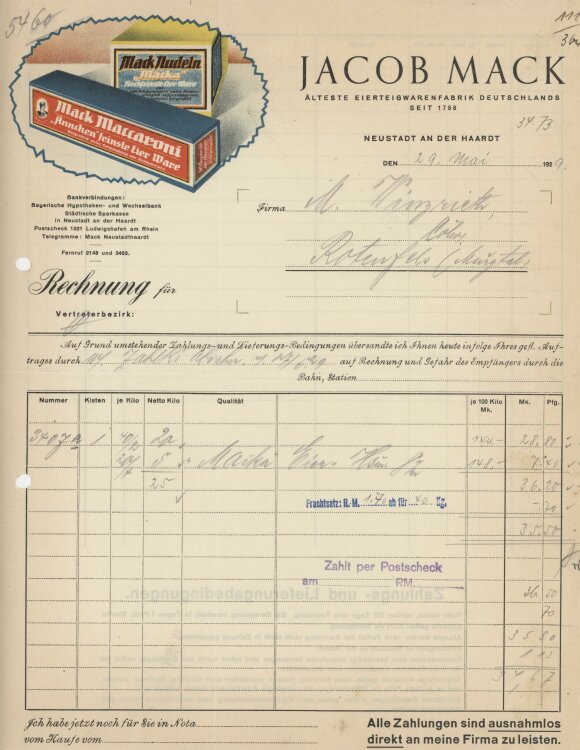 5460
Mack Nudeln
"Macka"
Hochfeinste Eier Ware
Mack Maccaroni
"Ännchen" feinste Eier Ware
JACOB MACK
ÄLTESTE EIERTEIGWARENFABRIK DEUTSCHLANDS
SEIT 1758
3473
NEUSTADT AN DER HAARDT
DEN 29. Mai 1929.
Bankverbindungen:
Bayerische Hypotheken- und Wechselbank
Städtische Sparkasse
in Neustadt an der Haardt
Postscheck 1021 Ludwigshafen am Rhein
Telegramme: Mack Neustadthaardt
Fernruf 2148 und 3463.
Firma M.
Rotenfels (Murgtal)
Rechnung für
Vertreterbezirk:
Auf Grund umstehender Zahlungs- und Lieferungs-Bedingungen übersandte ich Ihnen heute infolge Ihres gefl. Auf-
trages durch auf Rechnung und Gefahr des Empfängers durch die
Bahn, Station
Nummer Kisten je Kilo Netto Kilo Qualität je 100 Kilo Mk. Mk. Pfg.
3407a 1 20 144.- 28.80
5 Macka Eier 148.- 7.40
25 36.20
Frachtsatz: R.M. 1.70 ab für 40 Kg. -.70
35.50
Zahlt per Postscheck
am RM.
36 50
70
35 80
1 13
34 67
Ich habe jetzt noch für Sie in Nota
vom Kaufe vom
Alle Zahlungen sind ausnahmlos
direkt an meine Firma zu leisten.